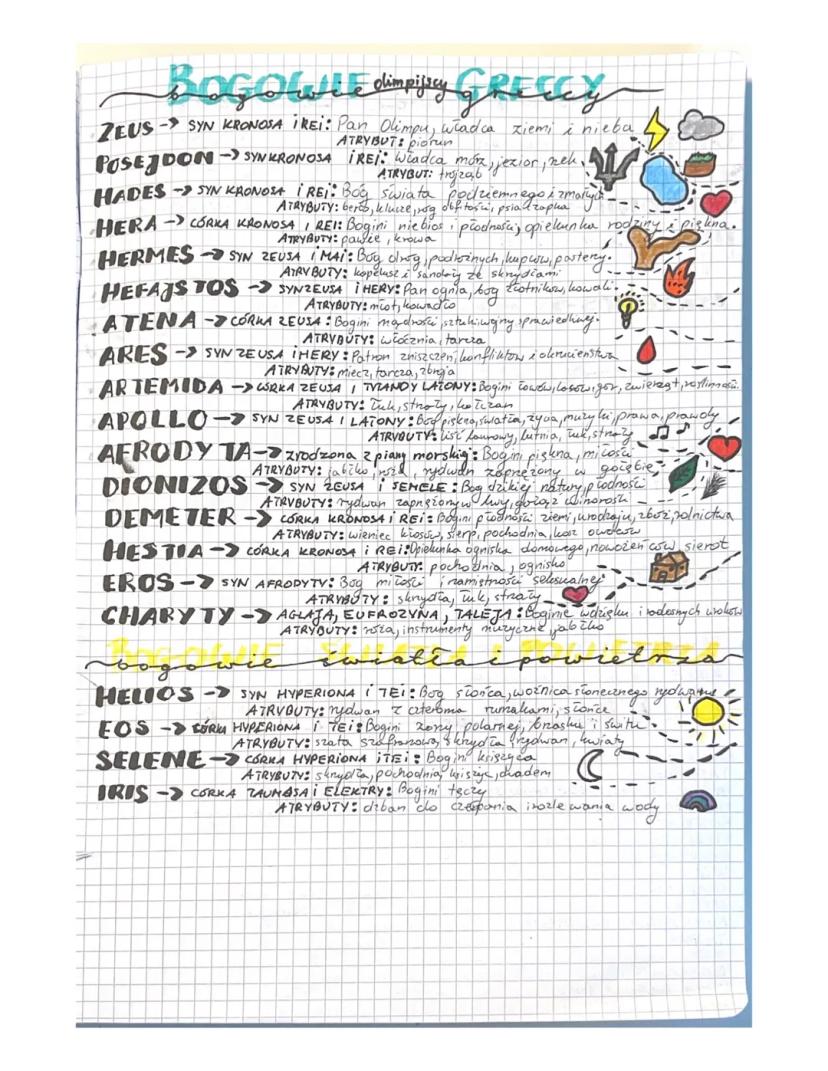 BOGOWIE olimpijscy GRECCY
bogowie greccy
ZEUS -> SYN KRONOSA i REi: Pan Olimpu, władca ziemi i nieba
ATRYBUT: piorun
POSEJDON -> SYN KRONOSA i REi: Władca mórz, jezior, rzek
ATRYBUT: trójząb
HADES -> SYN KRONOSA i REi: Bóg świata podziemnego i zmarłych
ATRYBUTY: berło, klucze, róg obfitości, psia czapka
HERA -> CÓRKA KRONOSA i REI: Bogini niebios i płodności, opiekunka rodziny i piękna.
ATRYBUTY: pawie, krowa
HERMES -> SYN ZEUSA i MAi: Bóg dróg, podróżnych, kupców, pasterzy.
ATRYBUTY: kapelusz i sandały ze skrzydłami
HEFAJSTOS -> SYN ZEUSA i HERY: Pan ognia, bóg złotników, kowali
ATRYBUTY: młot, kowadło
ATENA -> CÓRKA ZEUSA: Bogini mądrości, sztuki, wojny sprawiedliwej.
ATRYBUTY: włócznia, tarcza
ARES -> SYN ZEUSA i HERY: Patron zniszczeń, konfliktów i okrucieństwa
ATRYBUTY: miecz, tarcza, zbroja
ARTEMIDA -> CÓRKA ZEUSA I TYTANDY LATONY: Bogini łowów, lasów, gór, zwierząt, roślinności.
ATRYBUTY: Łuk, strzały, kołczan
APOLLO -> SYN ZEUSA I LATONY: Bóg piękna, światła, życia, muzyki, prawa, prawdy
ATRYBUTY: liść laurowy, lutnia, łuk, strzały
AFRODYTA -> zrodzona z piany morskiej: Bogini piękna, miłości
ATRYBUTY: jabłko, róża, rydwan zaprzężony w gołębie
DIONIZOS -> SYN ZEUSA i SEMELE: Bóg dzikiej natury, płodności
ATRYBUTY: rydwan zaprzężony w lwy, winorośl
DEMETER -> CÓRKA KRONOSA i REi: Bogini płodności ziemi, urodzaju, zbóż, rolnictwa
ATRYBUTY: wieniec kłosów, sierp, pochodnia, kosz owoców
HESTIA -> CÓRKA KRONOSA i REi: Opiekunka ogniska domowego, nowożeńców, sierot
ATRYBUTY: pochodnia, ognisko
EROS -> SYN AFRODYTY: Bóg miłości i namiętności seksualnej
ATRYBUTY: skrzydła, łuk, strzały
CHARYTY -> AGLAJA, EUFROZYNA, TALEJA: Boginie wdzięku i radosnych uroków
ATRYBUTY: róża, instrumenty muzyczne, jabłko
BOGOWIE ŚWIATŁA I POWIETRZA
bogowie światła i powietrza
HELIOS -> SYN HYPERIONA i TEi: Bóg słońca, woźnica słonecznego rydwanu
ATRYBUTY: rydwan z czterema rumakami, słońce
EOS -> CÓRKA HYPERIONA i TEi: Bogini zorzy polarnej, brzasku i świtu
ATRYBUTY: szata szafranowa, skrzydła, rydwan, kwiaty
SELENE -> CÓRKA HYPERIONA i TEi: Bogini księżyca
ATRYBUTY: skrzydła, pochodnia, księżyc, diadem
IRIS -> CÓRKA TAUMASA i ELEKTRY: Bogini tęczy
ATRYBUTY: dzban do czerpania i rozlewania wody